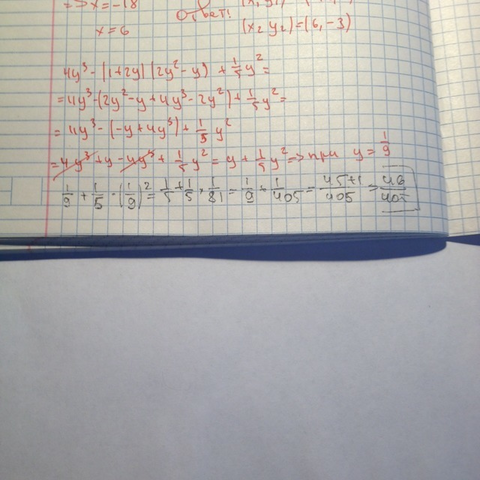 => x = -18
x = 6
Ответ:
(x₂ y₂) = (6, -3)
4y³ - (1+2y)(2y² - y) + 1/5 y² =
= 4y³ - (2y² - y + 4y³ - 2y²) + 1/5 y² =
= 4y³ - (-y + 4y³) + 1/5 y²
= 4y³ + y - 4y³ + 1/5 y² = y + 1/5 y² => при y = 1/9
1/9 + 1/5 · (1/9)² = 1/5 + 1/5 × 1/81 = 1/9 + 1/405 = 45+1/405 = 46/405